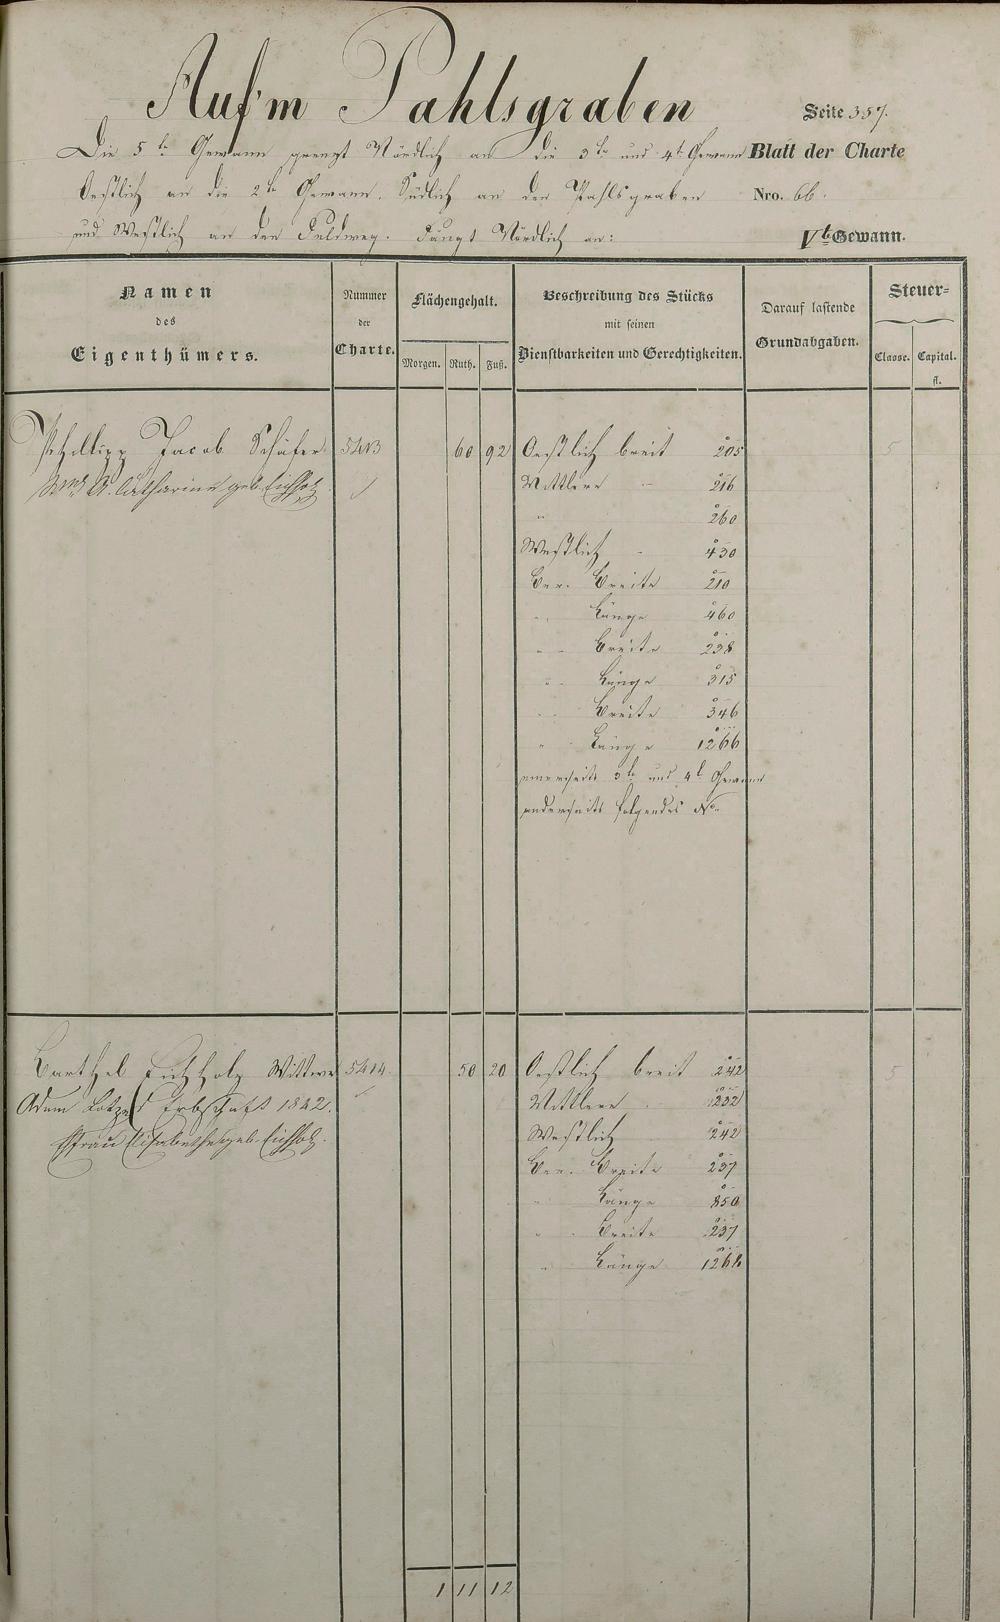 Auf'm Pahlsgraben
Seite 357.
Die 5te Gewann grenzt Nördlich an die 3te und 4te Gewann
Blatt der Charte
Oestlich an die 2te Gewann. Südlich an den Pahlsgraben
Nro. 66.
und Westlich an den Feldweg. Fängt Nördlich an:
Vte Gewann.
Namen
des
Eigenthümers.
Nummer
der
Charte.
Flächengehalt.
Morgen. Ruth. Fuß.
Beschreibung des Stücks
mit seinen
Dienstbarkeiten und Gerechtigkeiten.
Darauf lastende
Grundabgaben.
Steuer-
Classe. Capital.
fl.
Philipp Jacob Schäfer 5413 60 92 Oestlich breit 205 5
A. Catharine geb. Eichholz
Mittlere - 216
" 260
Westlich - 430
Ver. Breite 210
" Länge 460
" Breite 238
" Länge 315
" Breite 346
" Länge 1266
einerseits 3te und 4te Gewann
anderseits folgendes No.
Barthel Eichholz Wittwe 5414 50 20 Oestlich breit 242 5
Adam Lotz Erbschaft 1842.
Ehefrau Elisabethe geb. Eichholz.
Mittlere - 232
Westlich 242
Ver. Breite 237
" Länge 850
" Breite 237
" Länge 1268
1 11 12